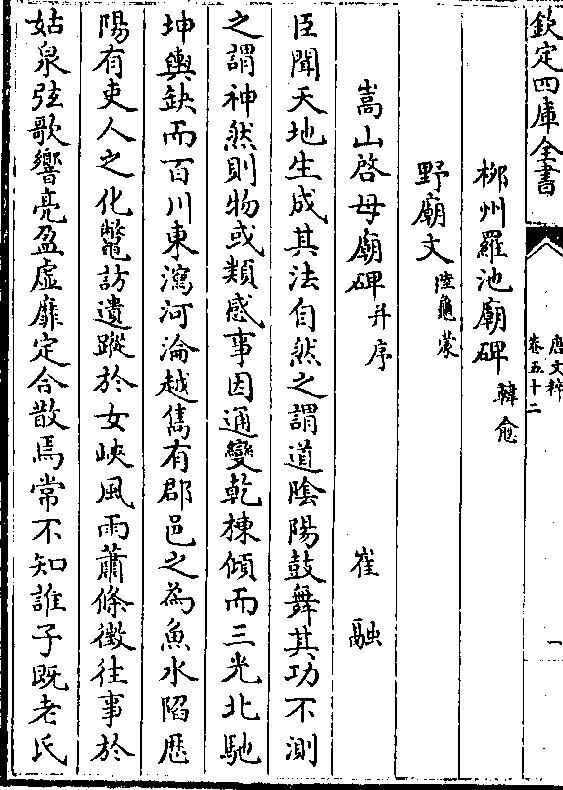 欽定四庫全書
唐文粹
卷五十二
一
栁州羅池廟碑 韓愈
野廟文 陸龜蒙
嵩山啓母廟碑并序 崔融
臣聞天地生成其法自然之謂道陰陽鼓舞其功不測
之謂神然則物或類感事因通變乾棟傾而三光北馳
坤輿缺而百川東瀉河淪越嶲有郡邑之為魚水陷歴
陽有吏人之化鼈訪遺蹤於女峽風雨蕭條徴往事於
姑泉弦歌響亮盈虛靡定合散焉常不知誰子既老氏